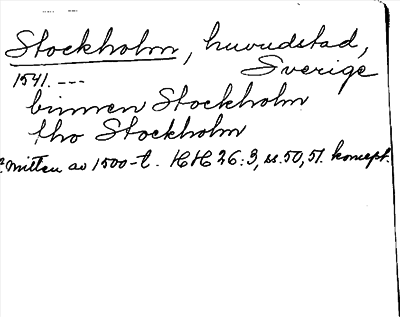 Stockholm, huvudstad,
Sverige
1541. ---
binnen Stockholm
tho Stockholm
mitten av 1500-t. HH 26:3, ss. 50, 51. koncept.